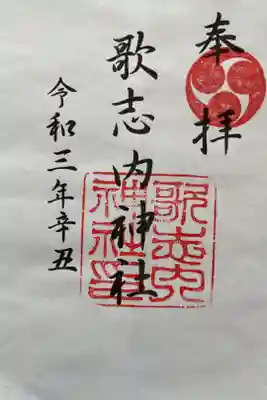 奉拝
歌志内神社
歌志内
神社印
令和三年辛丑